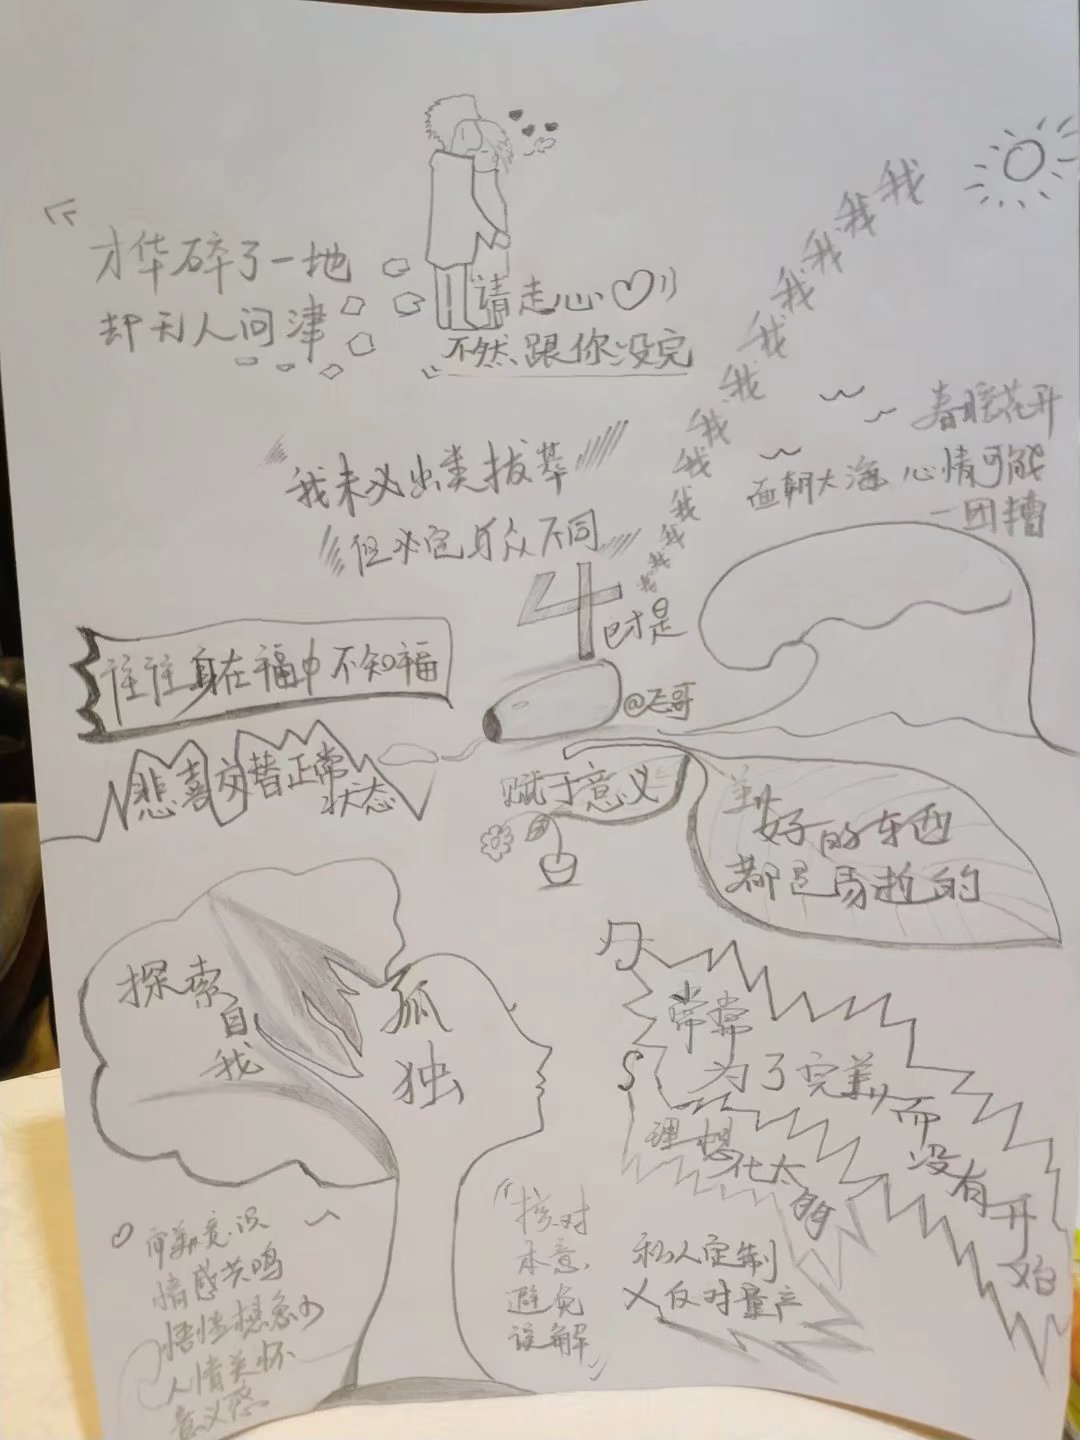 才华碎了一地
却无人问津
请走心
不然跟你没完
我我我我我我我我我我我我
春暖花开
面朝大海 心情可能
一团糟
我未必出类拔萃
但必定与众不同
4
才是
@飞哥
往往身在福中不知福
悲喜交替正常
状态
赋于意义
美好的东西
都是易逝的
探索
自我
孤
独
常常
为了完美而
没有开
始
理想化太
审美意识
情感共鸣
悟性想象力
人情关怀
意义感
核对
本意,
避免
误解
私人定制
反对量产